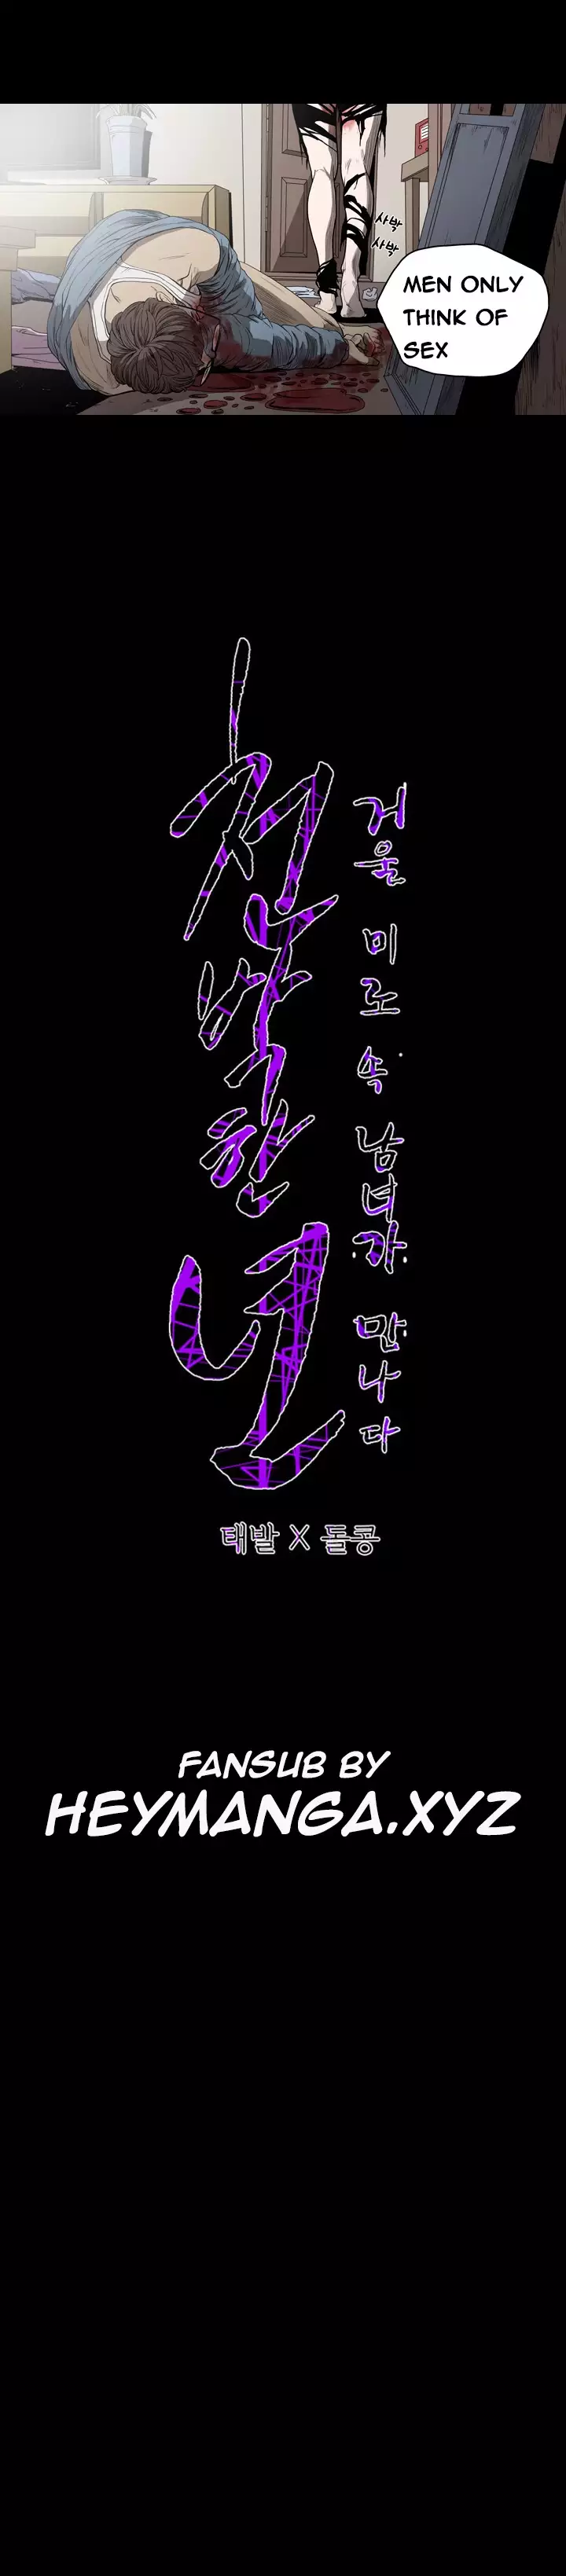 사박
사박
MEN ONLY
THINK OF
SEX
천박한 년
거울 미로 속 남녀가 만나다
태발 X 돌콩
FANSUB BY
HEYMANGA.XYZ